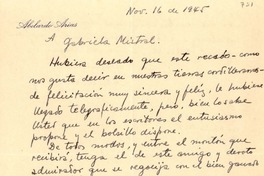 Nov. 16 de 1945
731
Abelardo Arias
A Gabriela Mistral.
Hubiera deseado que este recado - como
nos gusta decir en nuestras tierras cordilleranas -
de felicitación muy sincera y feliz, le hubiera
llegado telegráficamente, pero, bien lo sabe
Usted que en los escritores el entusiasmo
propone y el bolsillo dispone.
De todos modos, y entre el montón que
recibirá, tenga el de este amigo y devoto
admirador que se regocija con el bien ganado